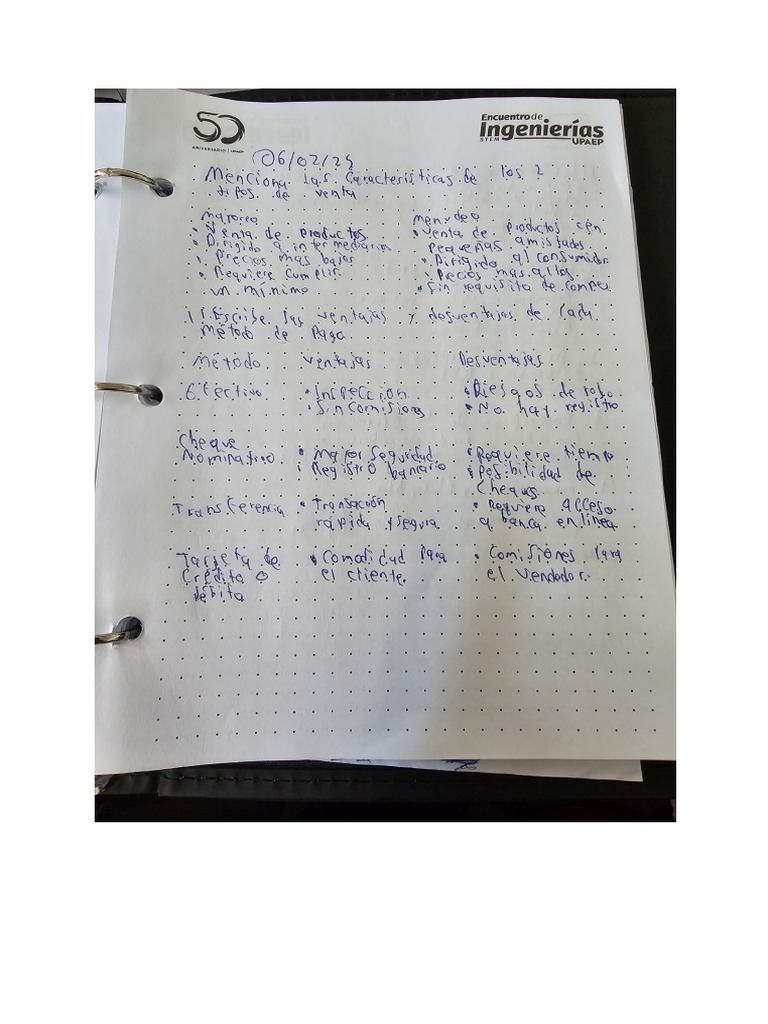 50
ANIVERSARIO | UPAEP
Encuentro de
Ingenierías
STEM
UPAEP
06/02/25
Menciona las características de los 2
tipos de venta
Mayoreo
• Venta de productos
• Dirigido a intermediarios
• Precios mas bajos
• Requiere cumplir
un mínimo
Menudeo
• Venta de productos en
pequeñas
• Dirigido al consumidor
• Precios mas altos
• Sin requisito de compra
15. Escribe las ventajas y desventajas de cada
Método de Pago
Método ventajas Desventajas
Efectivo • Inspeccion • Riesgos de robo
• Sin Comisiones • No hay registro
Cheque
Nominativo • Mayor seguridad • Requiere tiempo
• Registro bancario • Posibilidad de
Cheques
Transferencia • Transacción • Requiere acceso
rápida y segura a banca en línea
Tarjeta de • Comodidad para • Comisiones para
Crédito o el cliente. el vendedor.
débito